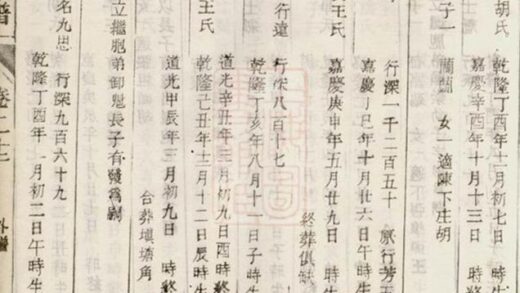 胡氏 乾隆丁酉年十二月初七日 時生
嘉慶辛酉年十月十三日 時終
子一 女一 適陳下庄胡
行深一千二百五十 原行芳五
嘉慶丁巳年十月廿六日午時生
王氏 嘉慶庚申年五月廿九日 時生
終葬俱缺
行遠 行深八百十七
乾隆丁亥年八月十一日子時生
道光辛丑年三月初九日酉時終
王氏 乾隆己丑年十二月十二日辰時生
道光甲辰年三月初九日 時終
合葬塤塘角
立繼胞弟卸魁長子有發為嗣
名九思 行深九百六十九
乾隆丁酉年 月初二日午時生